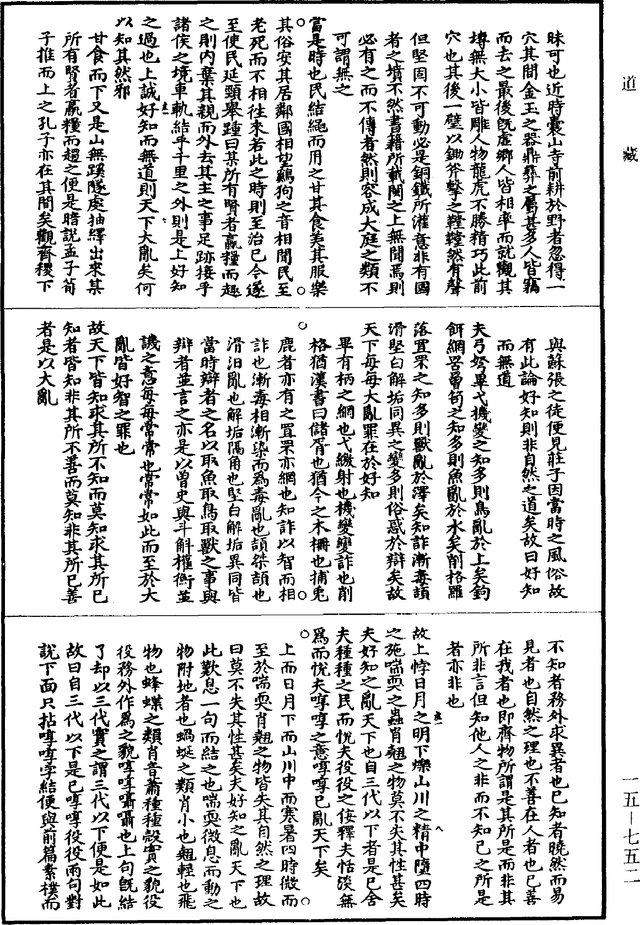 道藏
昧可也近時囊山寺前耕於野者忽得一
穴其間金玉之器鼎彝之屬甚多人皆竊
而去之最後既虛鄉人皆相率而就觀其
塼無大小皆雕人物龍虎不勝精巧此前
穴也其後一壁以鋤斧擊之鞺鞺然有聲
但堅固不可動必是銅鐵所灌意非有國
者之墳不然書籍所載闕之上無聞焉則
必有之而不傳者然則容成大庭之類不
可謂無之
當是時也民結繩而用之甘其食美其服樂
其俗安其居鄰國相望雞狗之音相聞民至
老死而不相往來若此之時則至治已今遂
至使民延頸舉踵曰某所有賢者贏糧而趣
之則內棄其親而外去其主之事足跡接乎
諸侯之境車軌結乎千里之外則是上好知
之過也上誠好知而無道則天下大亂矣何
以知其然邪
甘食而下又是山無蹊隧處抽繹出來某
所有賢者贏糧而趨之便是暗說孟子荀
子推而上之孔子亦在其間矣觀齊稷下
與蘇張之徒便見莊子因當時之風俗故
有此論好知則非自然之道矣故曰好知
而無道
夫弓弩畢弋機變之知多則鳥亂於上矣鉤
餌網罟罾笱之知多則魚亂於水矣削格羅
落罝罘之知多則獸亂於澤矣知詐漸毒頡
滑堅白解垢同異之變多則俗惑於辯矣故
天下每每大亂罪在於好知
畢有柄之網也弋繳射也機變變詐也削
格猶漢書曰儲胥也猶今之木柵也捕兎
鹿者亦有之罝罘亦網也知詐以智而相
詐也漸毒相漸染而為毒亂也頡桀頡也
滑汩亂也解垢隔角也堅白解垢異同皆
當時辯者之名以取魚取鳥取獸之事與
辯者並言之亦是以曾史與斗斛權衡並
譏之意每每常常也常常如此而至於大
亂皆好智之罪也
故天下皆知求其所不知而莫知求其所已
知者皆知非其所不善而莫知非其所已善
者是以大亂
不知者務外求異者也已知者曉然而易
見者也自然之理也不善在人者也已善
在我者也即齊物所謂是其所是而非其
所非言但知他人之非而不知己之所是
者亦非也
故上悖日月之明下爍山川之精中隳四時
之施喘耎之蟲肖翹之物莫不失其性甚矣
夫好知之亂天下也自三代以下者是已舍
夫種種之民而悅夫役役之佞釋夫恬淡無
爲而悅夫啍啍之意啍啍已亂天下矣
上而日月下而山川中而寒暑四時微而
至於喘耎肖翹之物皆失其自然之理故
曰莫不失其性甚矣夫好知之亂天下也
此歎息一句而結之也喘耎微息而動之
物附地者也蝸蜒之類肖小也翹輕也飛
物也蜂蝶之類肖音蕭種種殼實之貌役
役務外作為之貌啍啍嚙嚙也上句既結
了却以三代實之謂三代以下便是如此
故曰自三代以下是已啍啍役役兩句對
說下面只拈啍啍字結便與前篇素樸而
一五—七五二